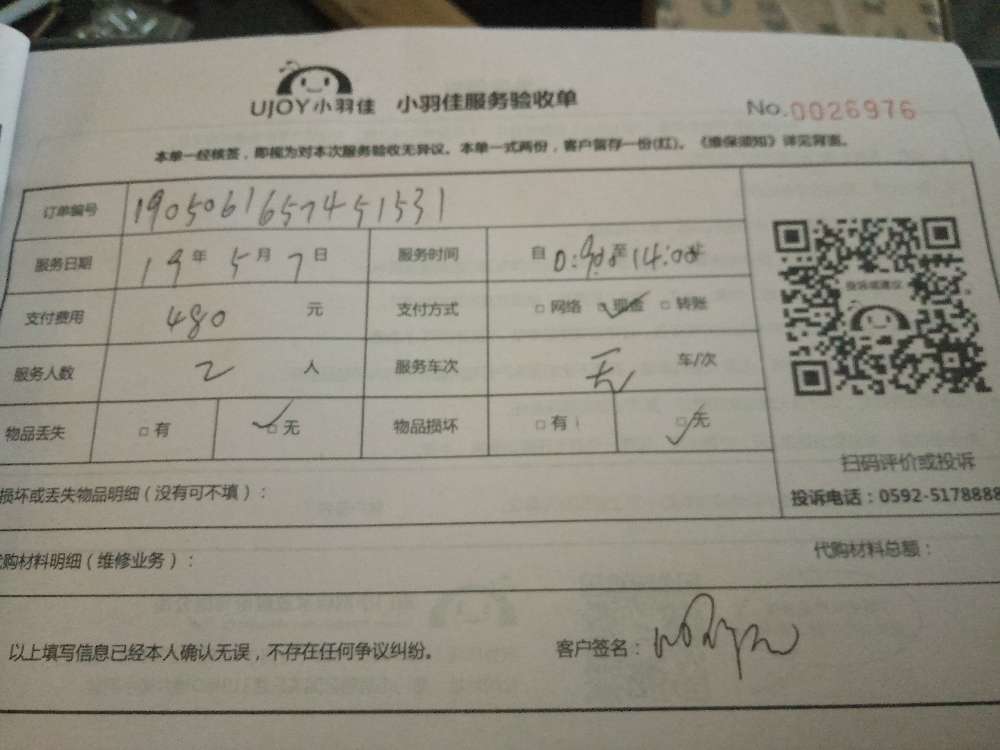 UJOY小羽佳 小羽佳服务验收单 No.0026976
本单一经核签，即视为对本次服务验收无异议。本单一式两份，客户留存一份(红)。《维保须知》详见背面。
订单编号 1905061657451531
服务日期 19年 5月 7日 服务时间 自 至14:00
支付费用 480 元 支付方式 □网络 □现金 □转账
服务人数 2 人 服务车次 无 车/次
物品丢失 □有 □无 物品损坏 □有 □无
扫码评价或投诉
投诉电话：0592-5178888
损坏或丢失物品明细（没有可不填）：
代购材料明细（维修业务）： 代购材料总额：
以上填写信息已经本人确认无误，不存在任何争议纠纷。 客户签名：